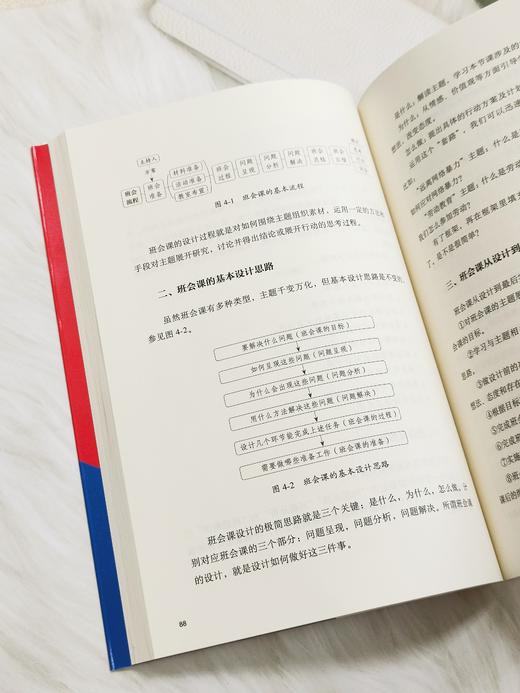 主持人
方案
班会流程
班会准备
材料准备
活动准备
教室布置
班会过程
问题呈现
问题分析
问题解决
班会总结
图 4-1 班会课的基本流程
班会课的设计过程就是对如何围绕主题组织素材、运用一定的方法和
手段对主题展开研究，讨论并得出结论或展开行动的思考过程。
二、班会课的基本设计思路
虽然班会课有多种类型，主题千变万化，但基本设计思路是不变的，
参见图 4-2。
要解决什么问题（班会课的目标）
如何呈现这些问题（问题呈现）
为什么会出现这些问题（问题分析）
用什么方法解决这些问题（问题解决）
设计几个环节能完成上述任务（班会课的过程）
需要做哪些准备工作（班会课的准备）
图 4-2 班会课的基本设计思路
班会课设计的极简思路就是三个关键：是什么，为什么，怎么做。分
别对应班会课的三个部分：问题呈现，问题分析，问题解决。所谓班会课
的设计，就是设计如何做好这三件事。
88
是什么：解读主题，学习本节课涉及的
为什么：从情感、价值观等方面引导
想法，改变态度。
怎么做：提出具体的行动方案及计划
运用这个“套路”，我们可以迅速
比如，“远离网络暴力”主题：什么是
如何应对网络暴力？
“劳动教育”主题：什么是劳动
我们怎么参加劳动？
有了框架，再在框架里填
了，是不是很简单？
三、班会课从设计到
班会课从设计到最后
①对班会课的主题
会课的目标。
②学习与主题相
思路。
③做设计前的
想法、态度和存在
④根据目标
⑤完成班
⑥完成班
⑦实施
⑧班
课后的